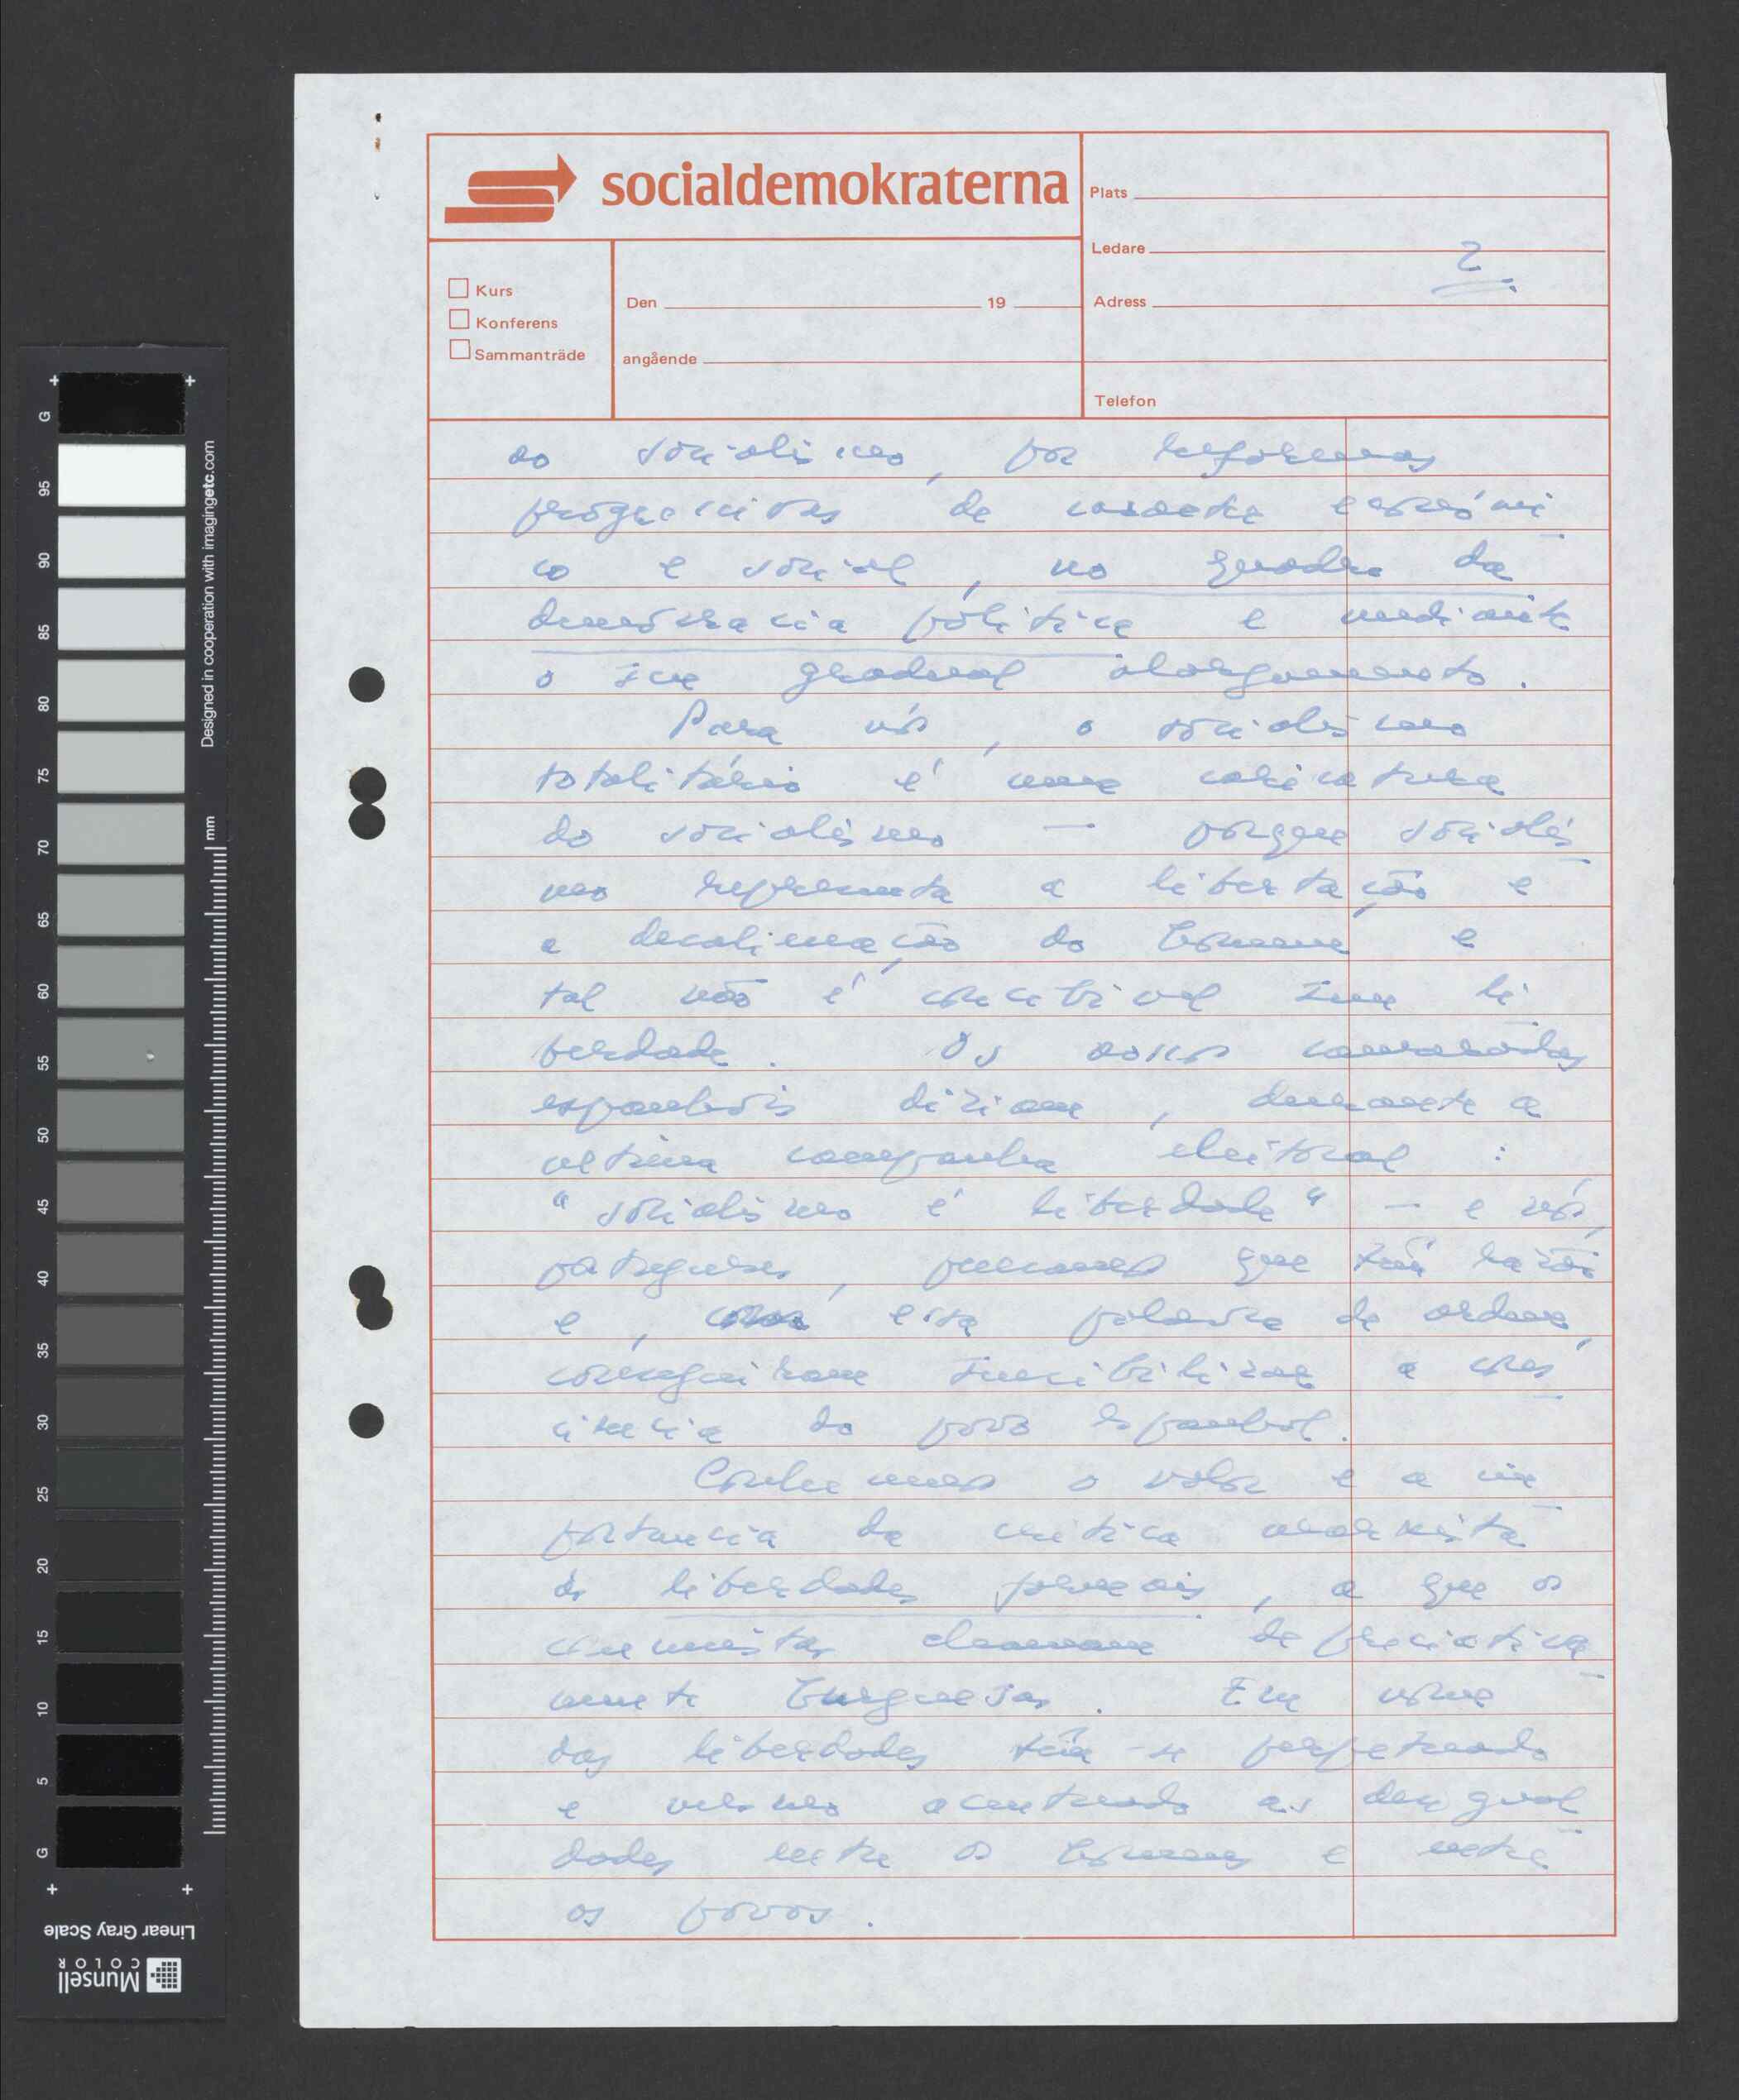 socialdemokraterna
Plats
Ledare
2.
Kurs
Konferens
Sammanträde
Den 19
angående
Adress
Telefon
ao socialismo, por reformas
progressivas de carácter económi-
co e social, no quadro da
democracia política e mediante
o seu gradual alargamento.
Para nós, o socialismo
totalitário é uma caricatura
do socialismo — porque socialis-
mo representa a libertação e
a desalienação do homem e
tal não é concebível sem li-
berdade. Os nossos camaradas
espanhois diziam, durante a
ultima campanha eleitoral :
"socialismo é liberdade" — e nós,
portugueses, pensamos que têm razão
e, com essa palavra de ordem,
conseguiram sensibilizar a cons-
ciência do povo espanhol.
Conhecemos o valor e a im-
portancia da critica marxista
às liberdades formais, a que os
comunistas chamavam depreciativa-
mente burguesas. Em nome
das liberdades têm-se perpetuado
e mesmo acentuado as desigual-
dades entre os homens e entre
os povos.
G
95
90
85
80
75
70
65
60
55
50
45
40
35
30
25
20
15
10
5
G
mm
Designed in cooperation with imagingetc.com
Linear Gray Scale
Munsell
COLOR